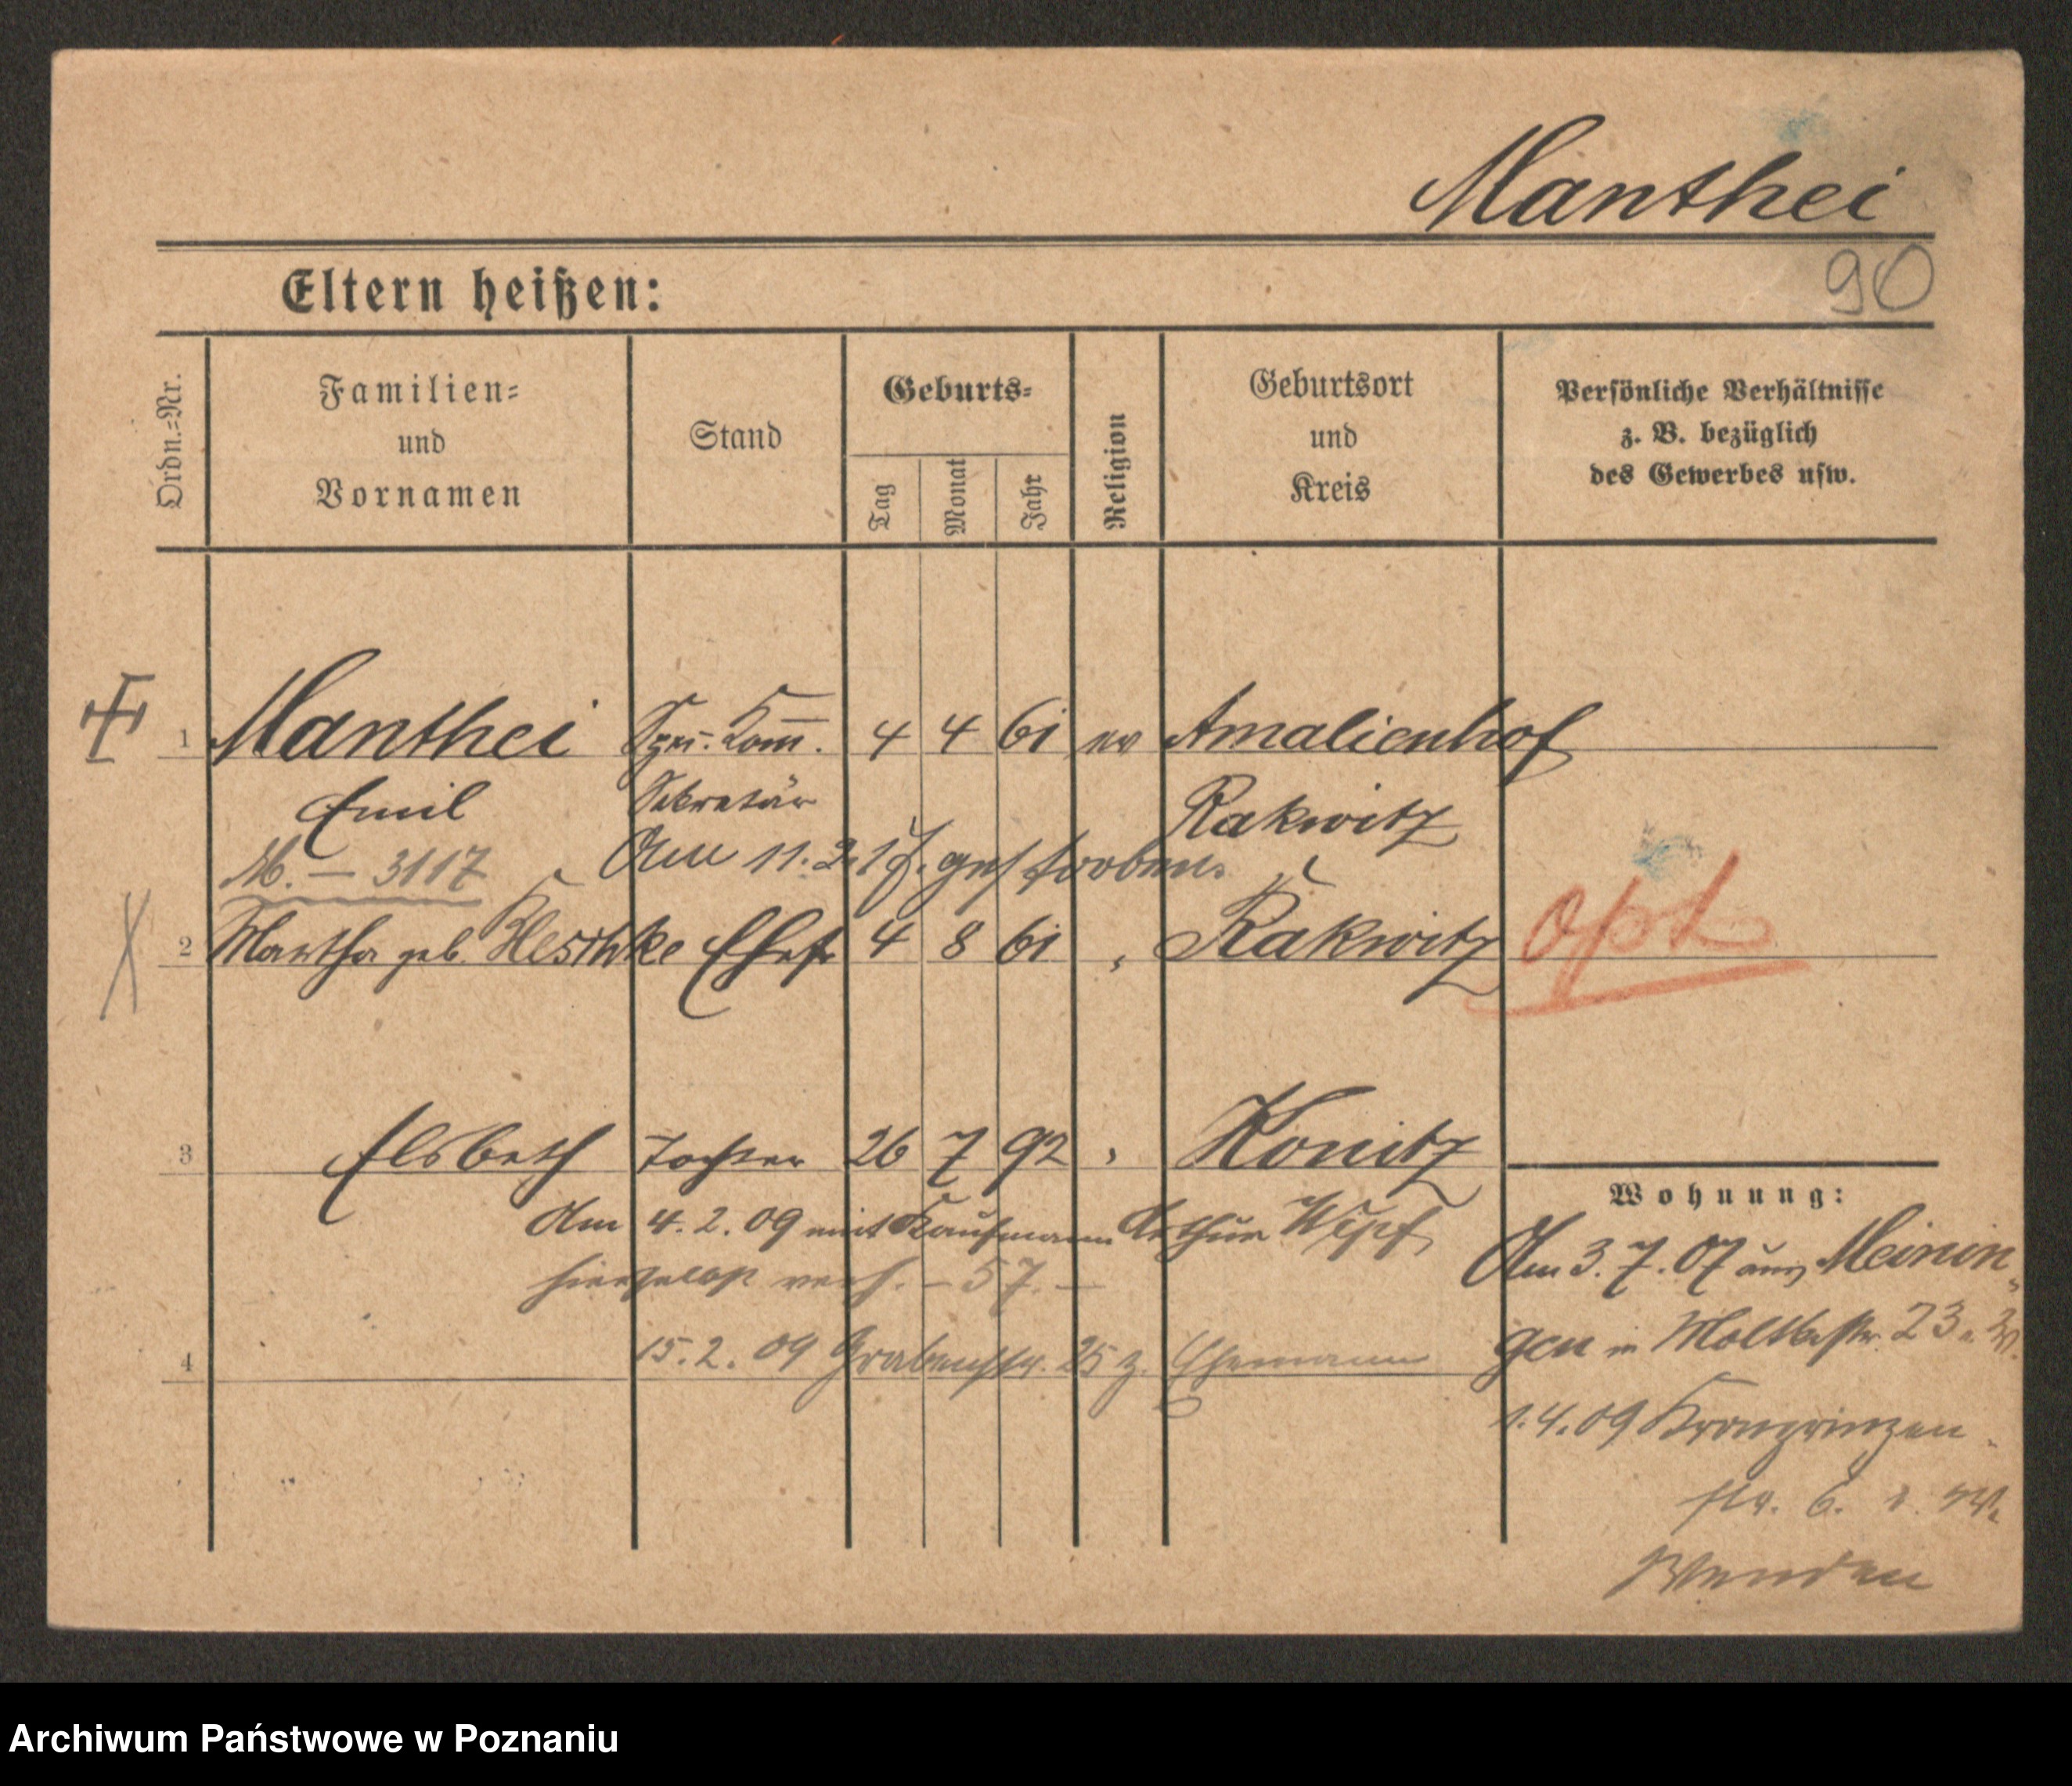 Manthei
90
Eltern heißen:
Ordn.=Nr.
Familien=
und
Vornamen
Stand
Geburts=
Tag
Monat
Jahr
Religion
Geburtsort
und
Kreis
Persönliche Verhältnisse
z. B. bezüglich
des Gewerbes usw.
1 Manthei Spez. Kom. 4 4 61 ev Amalienhof
Emil Sekretär Rakwitz
M. – 3117 Am 11. 2. 17. gestorben.
2 Martha geb. Klesthke Ehefr 4 8 61 " Rakwitz
opt
3 Elsbeth Tochter 26 7 92 " Konitz
Am 4. 2. 09 mit Kaufmann Arthur Wipf
hierselbst verh. – 57. –
4 15. 2. 09 Grabenstr. 25 z. Ehemann
Wohnung:
Am 3. 7. 07 aus Meinin-
gen in Moltkestr. 23
1. 4. 09 Kronprinzen-
str. 6.
Wenden
Archiwum Państwowe w Poznaniu